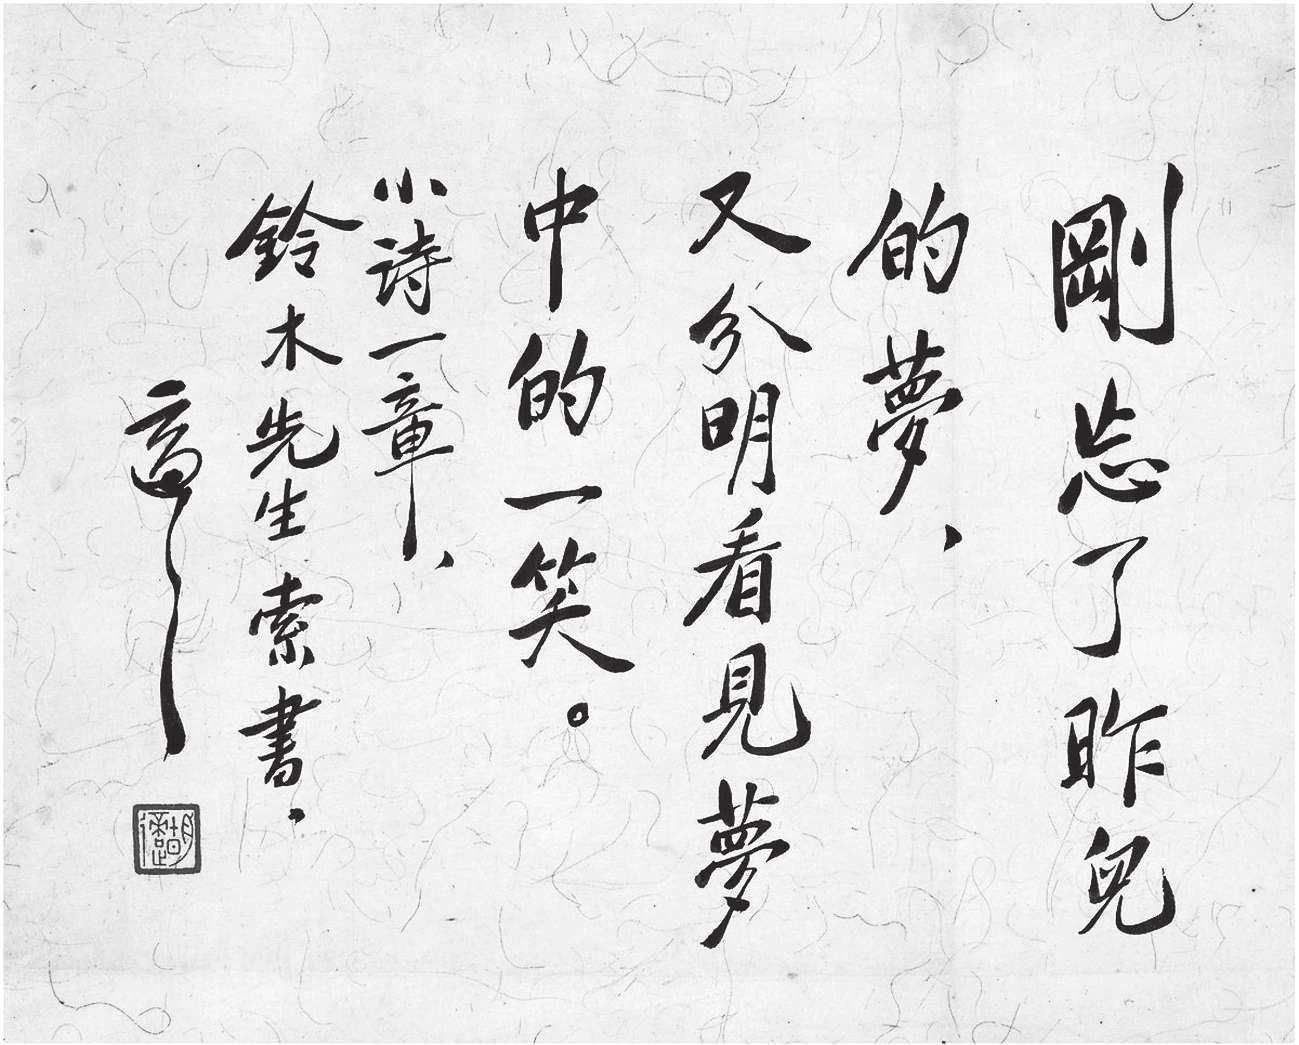 剛忘了昨兒
的夢、
又分明看見夢
中的一笑。
小詩一章、
鈴木先生索書.
適之
胡適